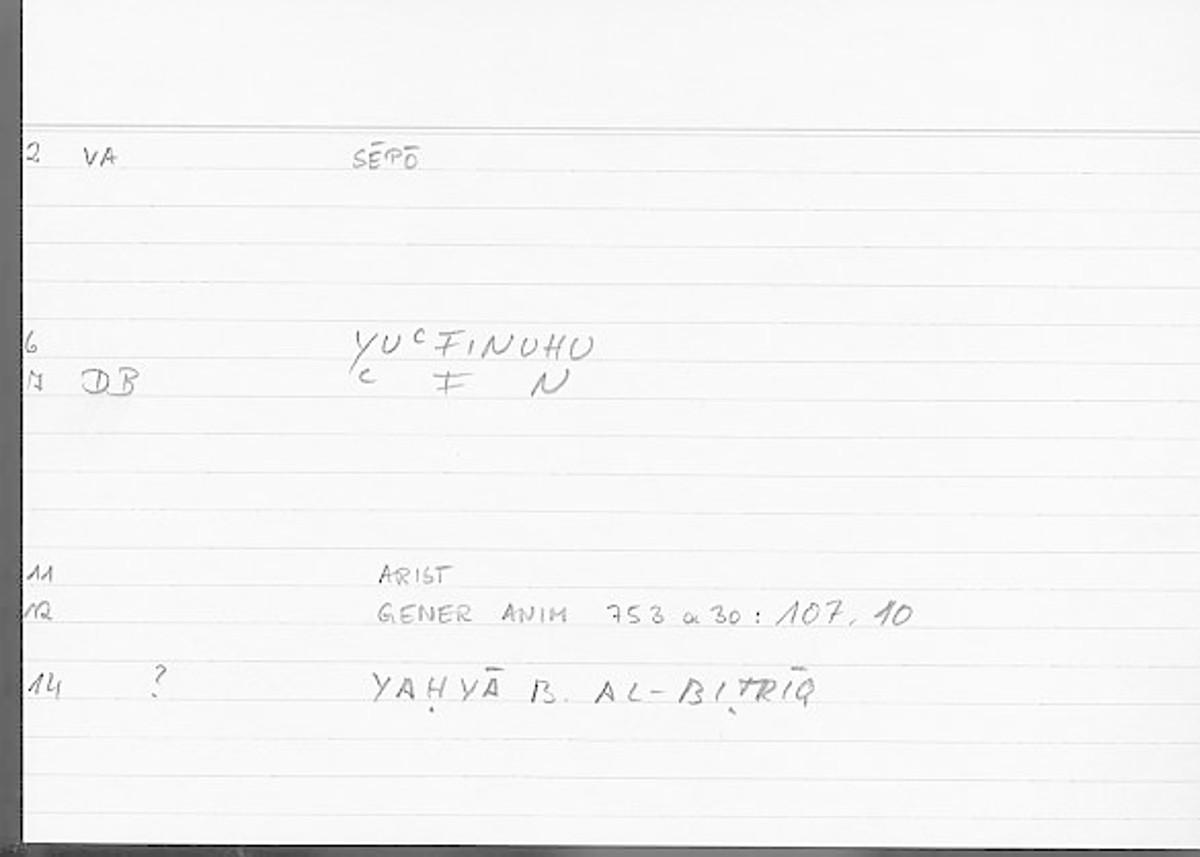 2 VA SĒPŌ
6 YUᶜF̵INUHU
7 DB ᶜ F̵ N
11 ARIST
12 GENER ANIM 753 a 30 : 107, 10
14 ? YAḤYĀ B. AL-BIṬRĪQ